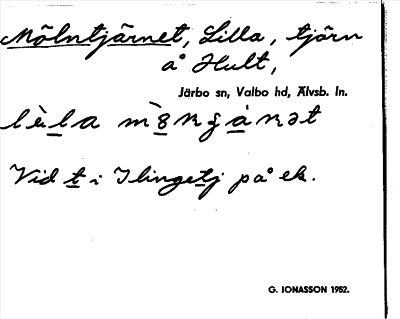 Mölntjärnet, Lilla, tjärn
å Hult,
Järbo sn, Valbo hd, Älvsb. ln.
Vid t i Ilingetj på ek.
G. JONASSON 1952.